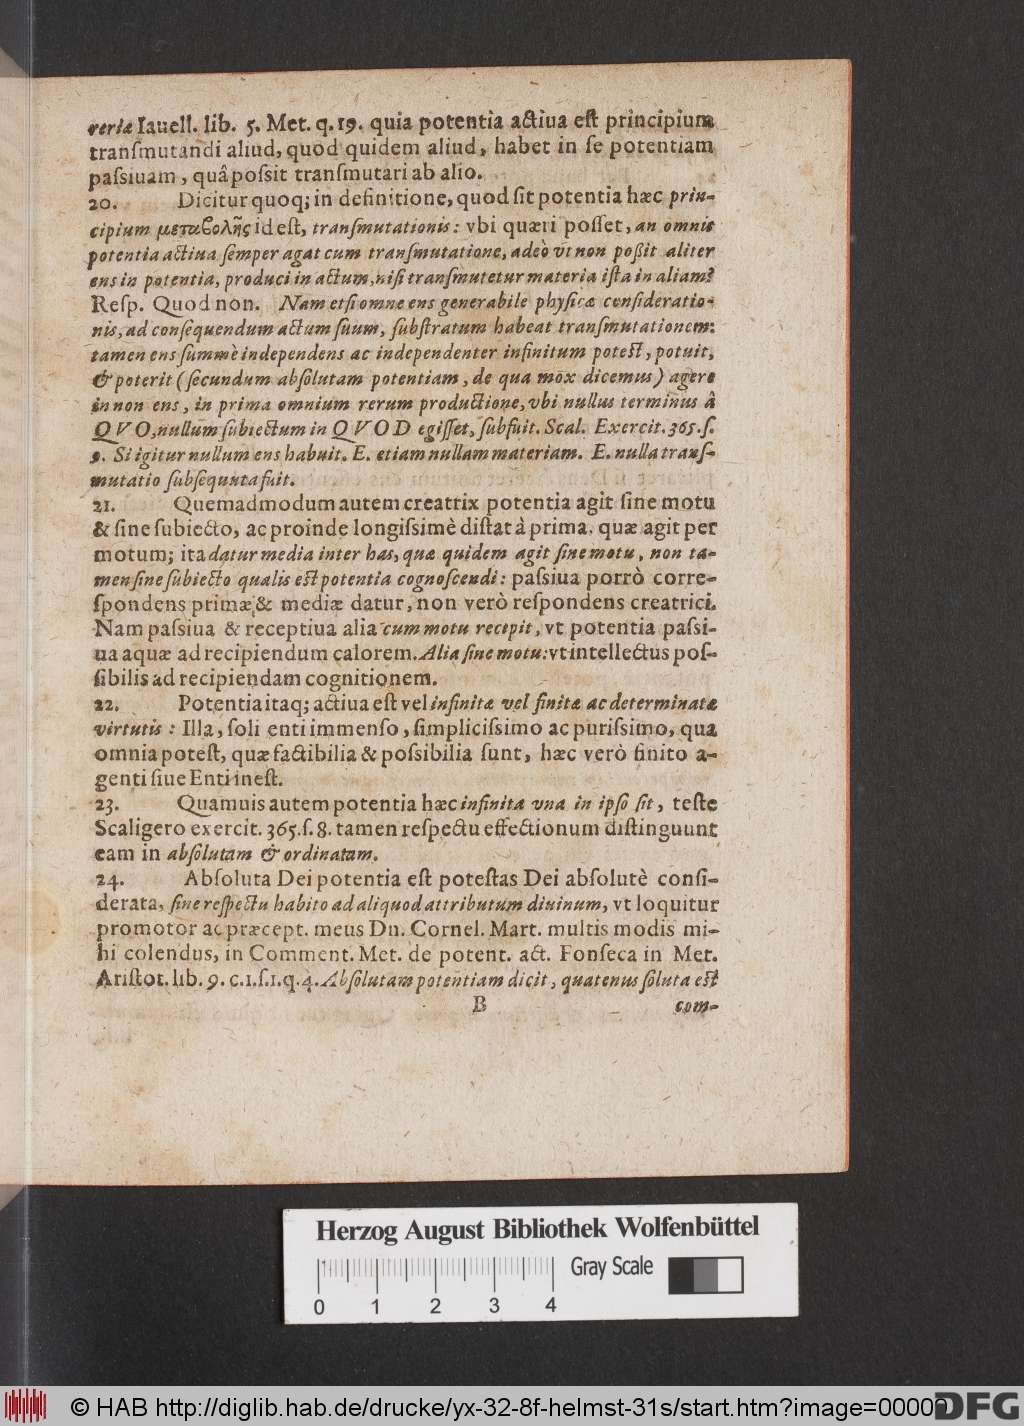 veriæ Iauell. lib. 5. Met. q. 19. quia potentia actiua eſt principium
tranſmutandi aliud, quod quidem aliud, habet in ſe potentiam
paſsiuam, quâ poſsit tranſmutari ab alio.
20. Dicitur quoq; in definitione, quod ſit potentia hæc prin-
cipium μεταβολῆς id eſt, tranſmutationis: vbi quæri poſſet, an omnis
potentia actiua ſemper agat cum tranſmutatione, adeò vt non poßit aliter
ens in potentia, produci in actum, niſi tranſmutetur materia iſta in aliam?
Reſp. Quod non. Nam etſi omne ens generabile phyſicæ conſideratio-
nis, ad conſequendum actum ſuum, ſubſtratum habeat tranſmutationem:
tamen ens ſummè independens ac independenter infinitum poteſt, potuit,
& poterit (ſecundum abſolutam potentiam, de qua mox dicemus) agere
in non ens, in prima omnium rerum productione, vbi nullus terminus â
QVO, nullum ſubiectum in QVOD egiſſet, ſubfuit. Scal. Exercit. 365. ſ.
9. Si igitur nullum ens habuit. E. etiam nullam materiam. E. nulla tranſ-
mutatio ſubſequuta fuit.
21. Quemadmodum autem creatrix potentia agit ſine motu
& ſine ſubiecto, ac proinde longiſsimè diſtat à prima, quæ agit per
motum; ita datur media inter has, quæ quidem agit ſine motu, non ta-
men ſine ſubiecto qualis eſt potentia cognoſcendi: paſsiua porrò corre-
ſpondens primæ & mediæ datur, non verò reſpondens creatrici.
Nam paſsiua & receptiua alia cum motu recepit, vt potentia paſsi-
ua aquæ ad recipiendum calorem. Alia ſine motu: vt intellectus poſ-
ſibilis ad recipiendam cognitionem.
22. Potentia itaq; actiua eſt vel infinitæ vel finitæ ac determinatæ
virtutis: Illa, ſoli enti immenſo, ſimpliciſsimo ac puriſsimo, qua
omnia poteſt, quæ factibilia & poſsibilia ſunt, hæc verò finito a-
genti ſiue Enti ineſt.
23. Quamuis autem potentia hæc infinita vna in ipſo ſit, teſte
Scaligero exercit. 365. ſ. 8. tamen reſpectu effectionum diſtinguunt
eam in abſolutam & ordinatam.
24. Abſoluta Dei potentia eſt poteſtas Dei abſolutè conſi-
derata, ſine reſpectu habito ad aliquod attributum diuinum, vt loquitur
promotor ac præcept. meus Dn. Cornel. Mart. multis modis mi-
hi colendus, in Comment. Met. de potent. act. Fonſeca in Met.
Ariſtot. lib. 9. c. 1. ſ. 1. q. 4. Abſolutam potentiam dicit, quatenus ſoluta eſt
B com-
Herzog August Bibliothek Wolfenbüttel
Gray Scale
0 1 2 3 4
© HAB http://diglib.hab.de/drucke/yx-32-8f-helmst-31s/start.htm?image=00009
DFG